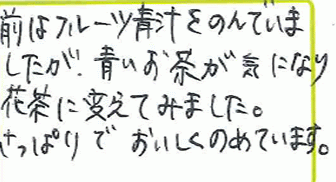 前はフルーツ青汁をのんでいま
したが、青いお茶が気になり
花茶に変えてみました。
さっぱりで おいしくのめています。